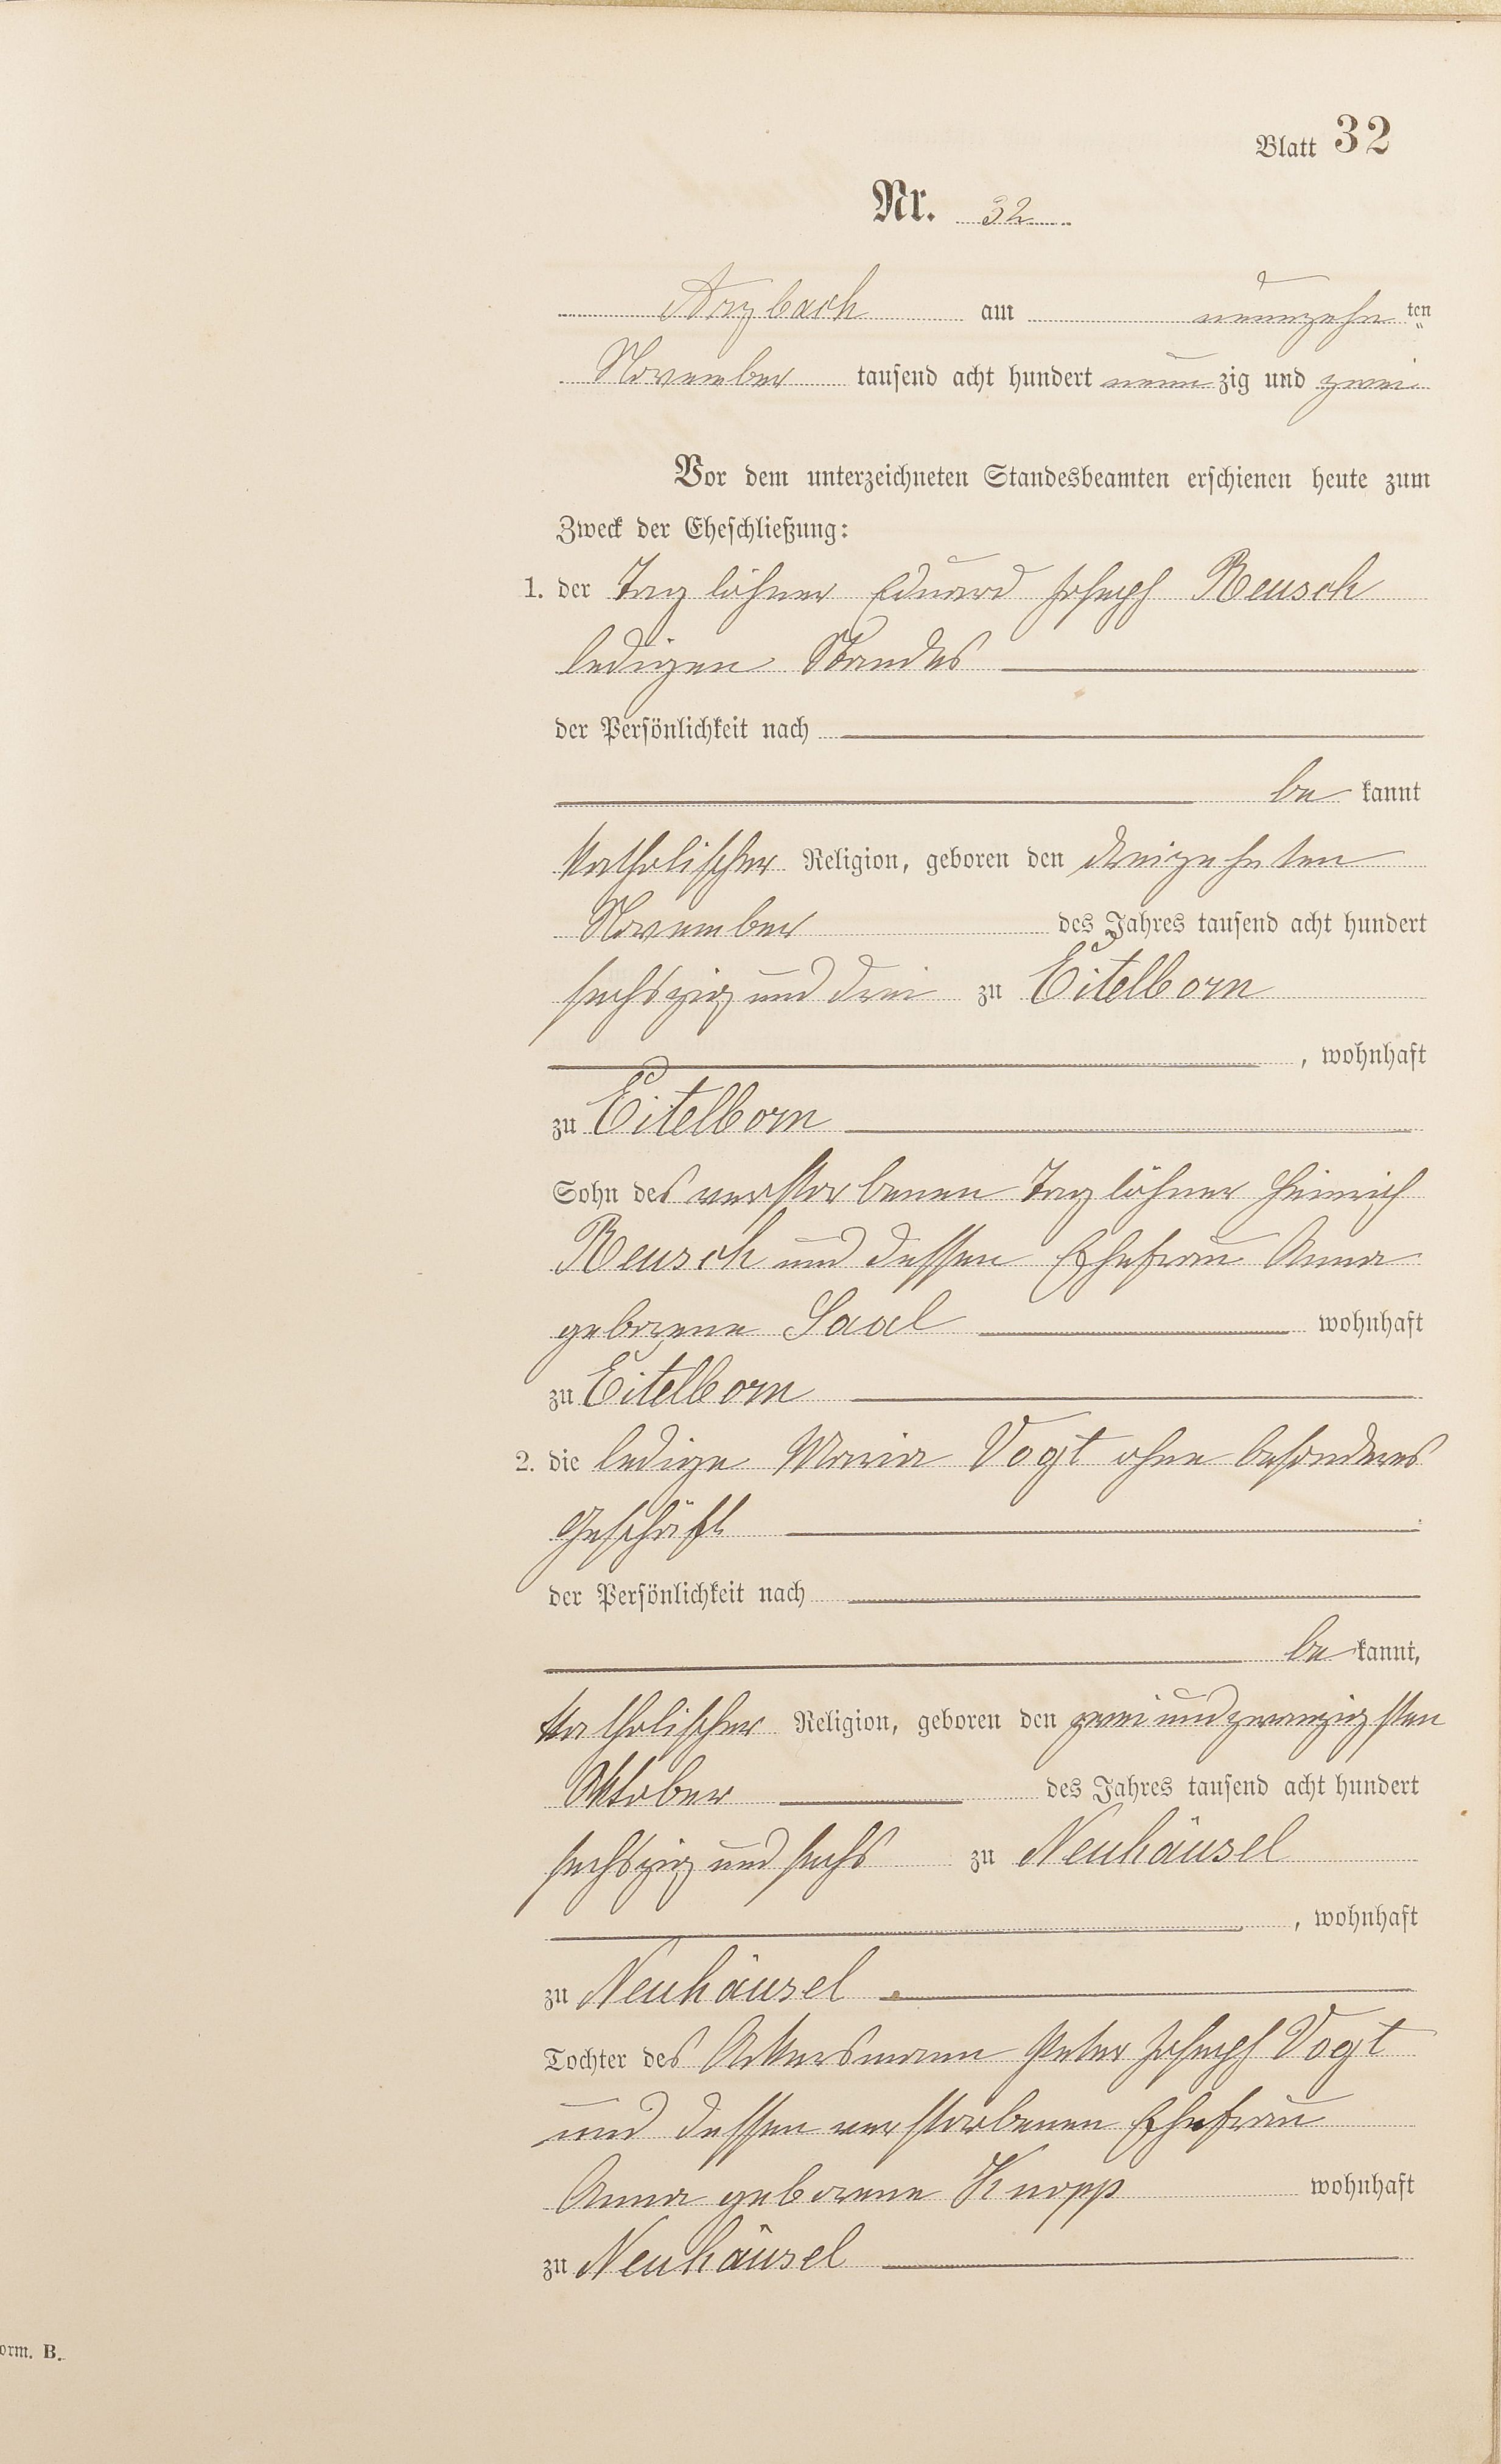 Blatt 32
Nr. 32
Arzbach am neunzehn ten
November tausend acht hundert neun zig und zwei
Vor dem unterzeichneten Standesbeamten erschienen heute zum
Zweck der Eheschließung:
1. der Taglöhner Eduard Joseph Reusch
ledigen Standes
der Persönlichkeit nach
be kannt
katholischer Religion, geboren den dreizehnten
November des Jahres tausend acht hundert
sechszig und drei zu Eitelborn
, wohnhaft
zu Eitelborn
Sohn des verstorbenen Taglöhner Heinrich
Reusch und dessen Ehefrau Anna
geborene Saal wohnhaft
zu Eitelborn
2. die ledige Maria Vogt ohne besonderes
Geschäft
der Persönlichkeit nach
be kannt,
katholischer Religion, geboren den zwei und zwanzigsten
Oktober des Jahres tausend acht hundert
sechszig und sechs zu Neuhäusel
, wohnhaft
zu Neuhäusel
Tochter des Ackersmann Peter Joseph Vogt
und dessen verstorbenen Ehefrau
Anna geborene Knopp wohnhaft
zu Neuhäusel
orm. B.